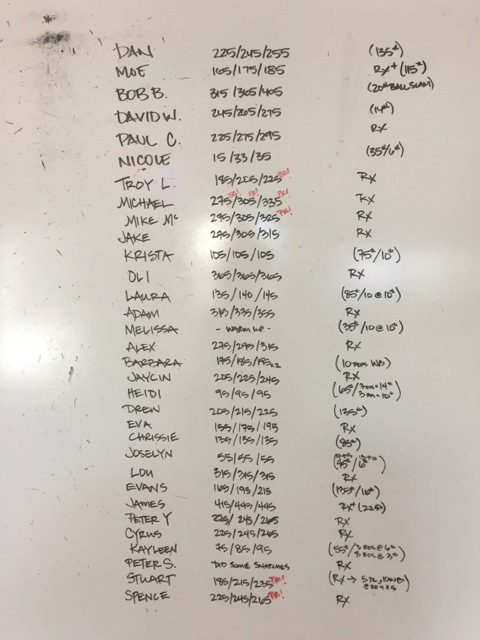 DAN 225/245/255 (135#)
MOE 105/175/185 RX+ (115#)
BOB B. 315/365/405 (20# BALL SLAM)
DAVID W. 245/265/275 (14#)
PAUL C. 225/275/295 RX
NICOLE 15/33/35 (35#/6#)
TROY L. 185/205/225 PR! RX
MICHAEL 275/305/335 PR! PR! PR! RX
MIKE Mc 295/305/325 PR! RX
JAKE 295/305/315 RX
KRISTA 105/105/105 (75#/10#)
OLI 365/365/365 RX
LAURA 135/140/145 (85#/10@10#)
ADAM 315/335/355 RX
MELISSA - WARM UP - (35#/10@10#)
ALEX 275/295/315 RX
BARBARA (10 WB)
JAYLIN 205/225/245 RX
HEIDI 95/95/95 (65#/
DREW 205/215/225 (135#)
EVA 155/175/195 RX
CHRISSIE 135/135/135 (95#)
JOSELYN 55/55/55
LOU 315/315/315 RX
EVANS 165/195/215 (135#/16#)
JAMES 415/445/445 RX+ (225#)
PETER Y 225/245/265 RX
CYRUS 225/245/265 RX
KAYLEEN 75/85/95 (55#/
PETER S. DID SOME SNATCHES RX
STUART 185/215/235 PR! (RX →
SPENCE 225/245/265 PR! RX